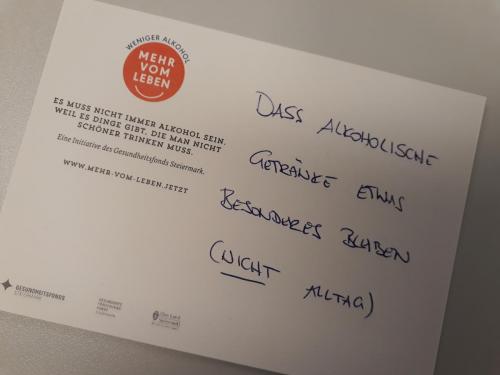 WENIGER ALKOHOL
MEHR
VOM
LEBEN
ES MUSS NICHT IMMER ALKOHOL SEIN.
WEIL ES DINGE GIBT, DIE MAN NICHT
SCHÖNER TRINKEN MUSS.
Eine Initiative des Gesundheitsfonds Steiermark.
WWW.MEHR-VOM-LEBEN.JETZT
DASS ALKOHOLISCHE
GETRÄNKE ETWAS
BESONDERES BLEIBEN
(NICHT ALLTAG)
GESUNDHEITSFONDS
STEIERMARK
Das Land
Steiermark